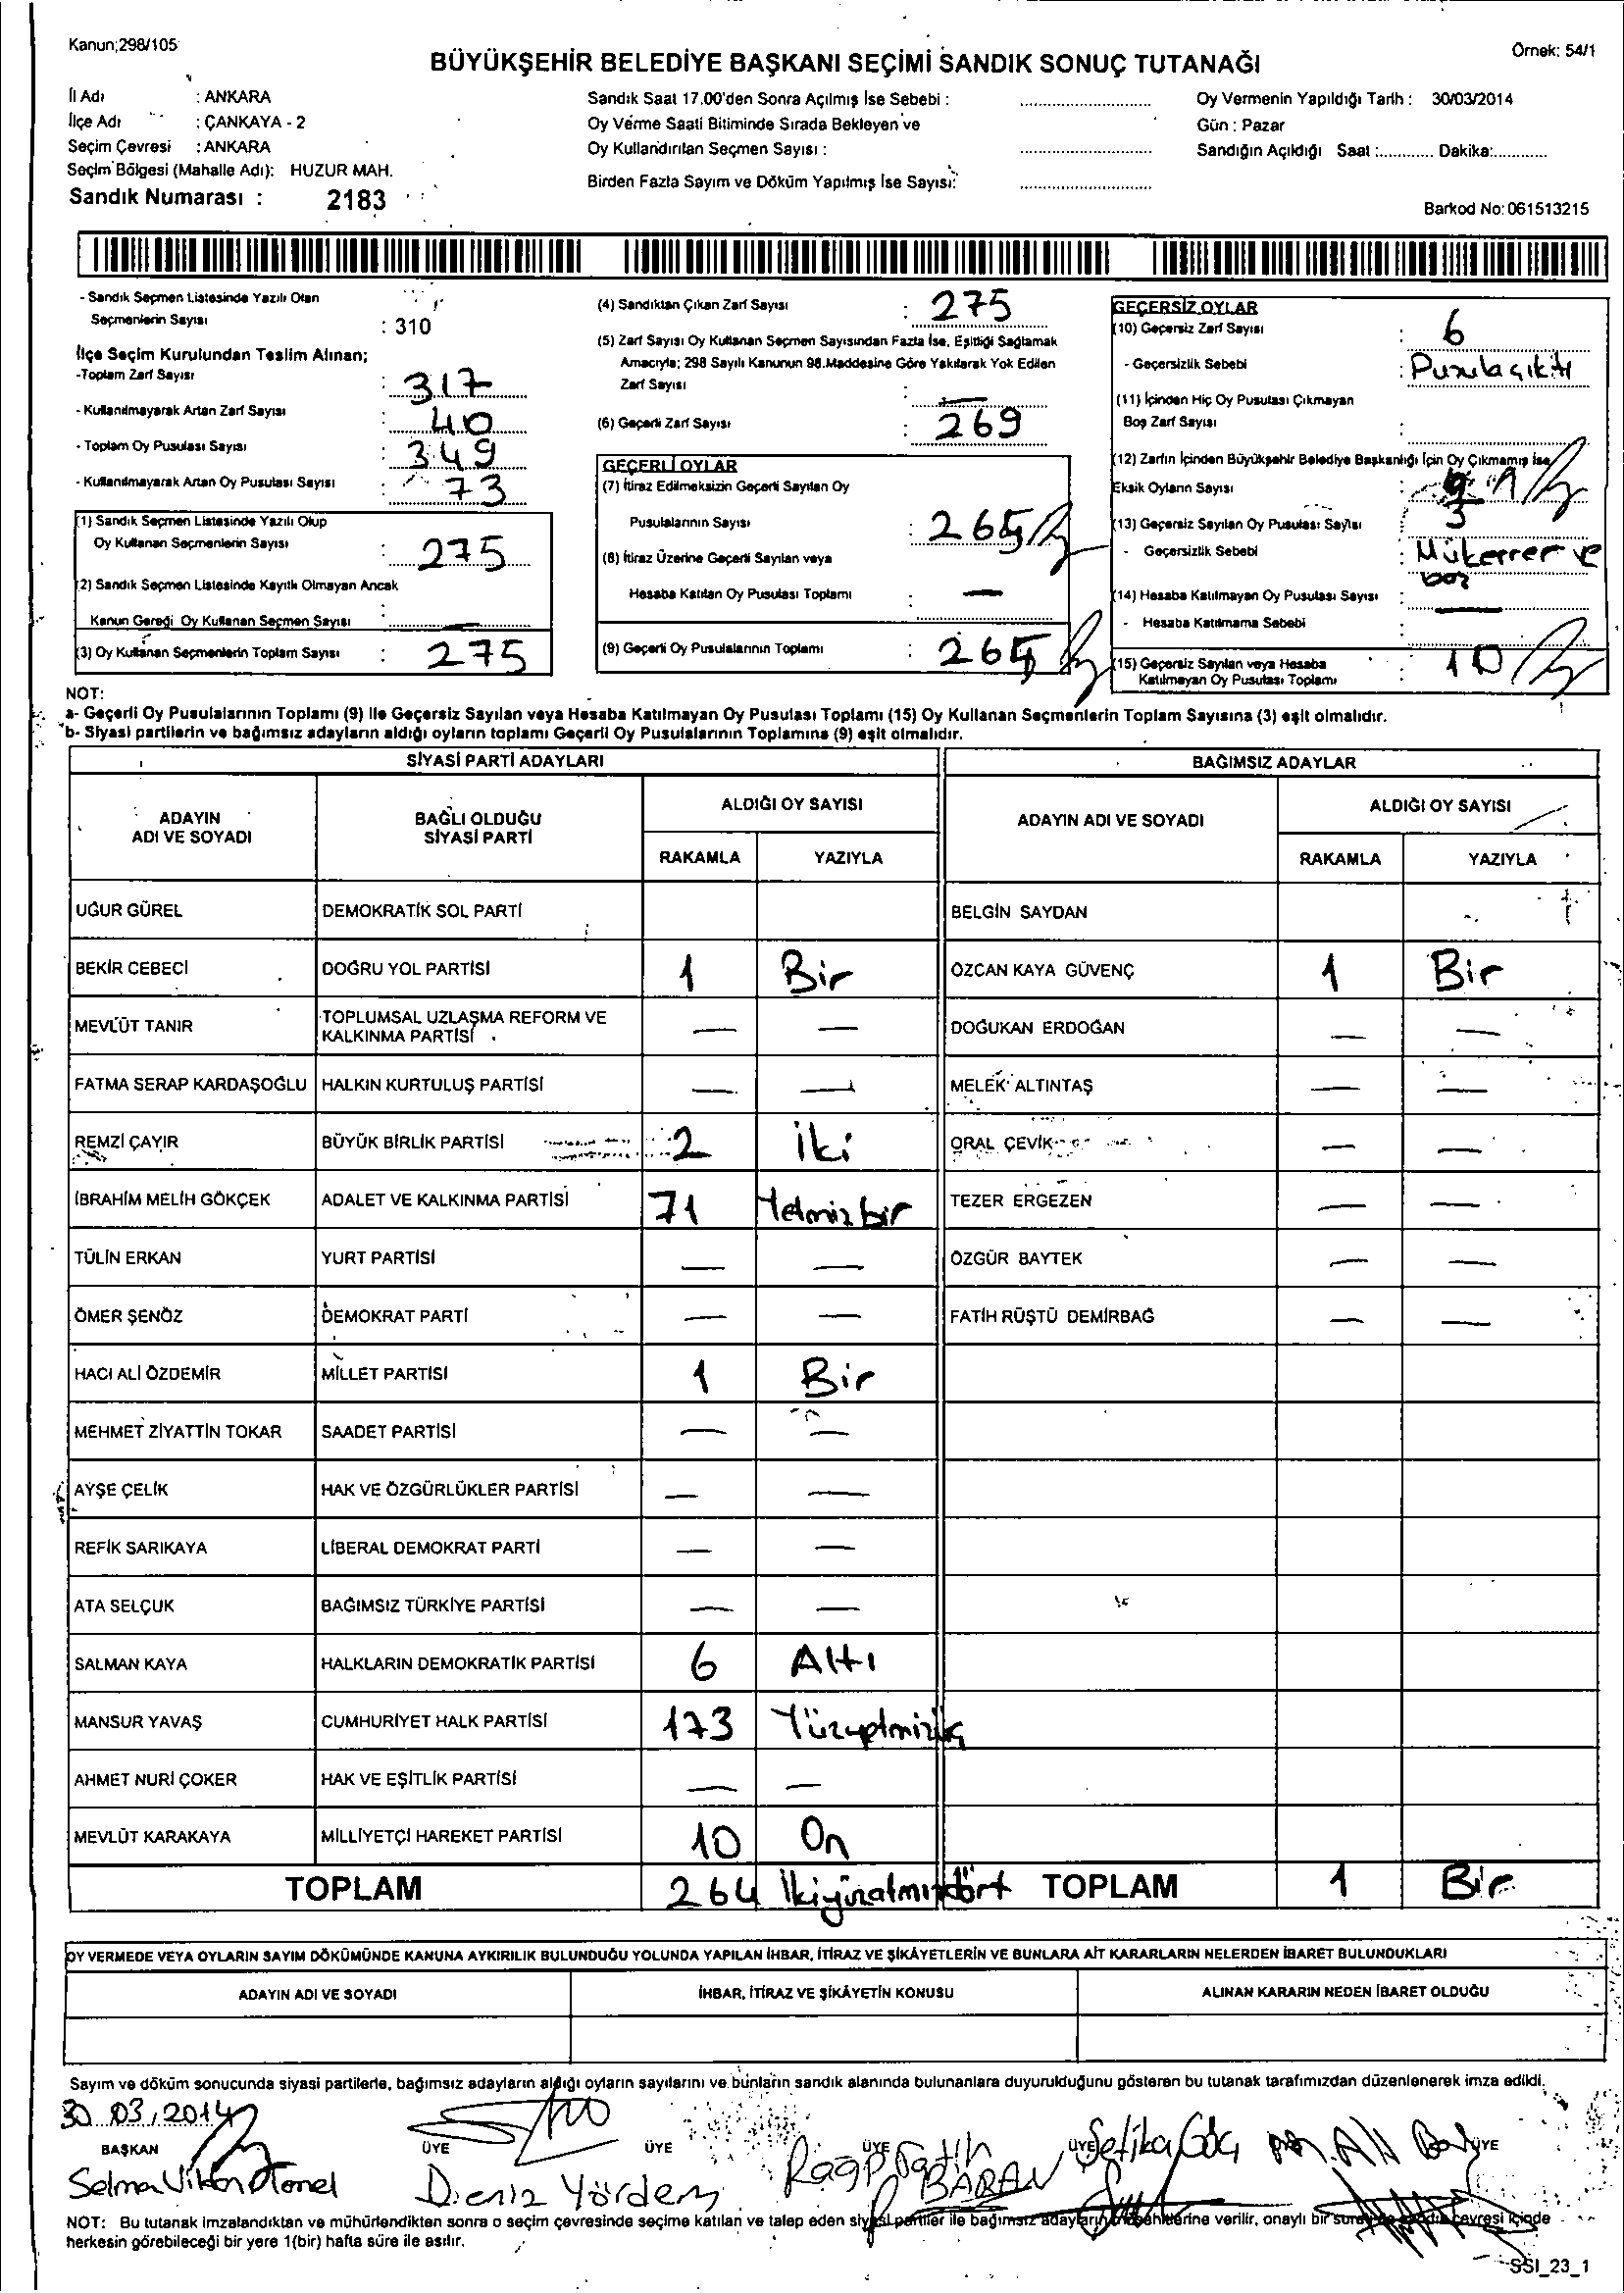 Kanun;298/105
Örnek: 54/1
BÜYÜKŞEHİR BELEDİYE BAŞKANI SEÇİMİ SANDIK SONUÇ TUTANAĞI
İl Adı : ANKARA
İlçe Adı : ÇANKAYA - 2
Seçim Çevresi : ANKARA
Seçim Bölgesi (Mahalle Adı): HUZUR MAH.
Sandık Numarası : 2183
Sandık Saat 17.00'den Sonra Açılmış İse Sebebi :
Oy Verme Saati Bitiminde Sırada Bekleyen ve
Oy Kullandırılan Seçmen Sayısı :
Birden Fazla Sayım ve Döküm Yapılmış İse Sayısı:
Oy Vermenin Yapıldığı Tarih : 30/03/2014
Gün : Pazar
Sandığın Açıldığı Saat :............ Dakika:............
Barkod No:061513215
- Sandık Seçmen Listesinde Yazılı Olan
Seçmenlerin Sayısı : 310
İlçe Seçim Kurulundan Teslim Alınan;
-Toplam Zarf Sayısı : 317
- Kullanılmayarak Artan Zarf Sayısı : 40
- Toplam Oy Pusulası Sayısı : 349
- Kullanılmayarak Artan Oy Pusulası Sayısı : 73
(1) Sandık Seçmen Listesinde Yazılı Olup
Oy Kullanan Seçmenlerin Sayısı : 275
(2) Sandık Seçmen Listesinde Kayıtlı Olmayan Ancak
Kanun Gereği Oy Kullanan Seçmen Sayısı : —
(3) Oy Kullanan Seçmenlerin Toplam Sayısı : 275
(4) Sandıktan Çıkan Zarf Sayısı : 275
(5) Zarf Sayısı Oy Kullanan Seçmen Sayısından Fazla İse, Eşitliği Sağlamak
Amacıyla; 298 Sayılı Kanunun 98.Maddesine Göre Yakılarak Yok Edilen
Zarf Sayısı : —
(6) Geçerli Zarf Sayısı : 269
GEÇERLİ OYLAR
(7) İtiraz Edilmeksizin Geçerli Sayılan Oy
Pusulalarının Sayısı : 265
(8) İtiraz Üzerine Geçerli Sayılan veya
Hesaba Katılan Oy Pusulası Toplamı : —
(9) Geçerli Oy Pusulalarının Toplamı : 265
GEÇERSİZ OYLAR
(10) Geçersiz Zarf Sayısı : 6
- Geçersizlik Sebebi : Pusula çıktı
(11) İçinden Hiç Oy Pusulası Çıkmayan
Boş Zarf Sayısı :
(12) Zarfın İçinden Büyükşehir Belediye Başkanlığı İçin Oy Çıkmamış İse
Eksik Oyların Sayısı : 1
(13) Geçersiz Sayılan Oy Pusulası Sayısı : 3
- Geçersizlik Sebebi : Mükerrer ve
boş
(14) Hesaba Katılmayan Oy Pusulası Sayısı : —
- Hesaba Katılmama Sebebi :
(15) Geçersiz Sayılan veya Hesaba : 10
Katılmayan Oy Pusulası Toplamı
NOT:
a- Geçerli Oy Pusulalarının Toplamı (9) ile Geçersiz Sayılan veya Hesaba Katılmayan Oy Pusulası Toplamı (15) Oy Kullanan Seçmenlerin Toplam Sayısına (3) eşit olmalıdır.
b- Siyasi partilerin ve bağımsız adayların aldığı oyların toplamı Geçerli Oy Pusulalarının Toplamına (9) eşit olmalıdır.
SİYASİ PARTİ ADAYLARI BAĞIMSIZ ADAYLAR
ADAYIN ADI VE SOYADI BAĞLI OLDUĞU SİYASİ PARTİ ALDIĞI OY SAYISI ADAYIN ADI VE SOYADI ALDIĞI OY SAYISI
RAKAMLA YAZIYLA RAKAMLA YAZIYLA
UĞUR GÜREL DEMOKRATİK SOL PARTİ BELGİN SAYDAN
BEKİR CEBECİ DOĞRU YOL PARTİSİ 1 Bir ÖZCAN KAYA GÜVENÇ 1 Bir
MEVLÜT TANIR TOPLUMSAL UZLAŞMA REFORM VE KALKINMA PARTİSİ — — DOĞUKAN ERDOĞAN — —
FATMA SERAP KARDAŞOĞLU HALKIN KURTULUŞ PARTİSİ — — MELEK ALTINTAŞ — —
REMZİ ÇAYIR BÜYÜK BİRLİK PARTİSİ 2 İki ORAL ÇEVİK — —
İBRAHİM MELİH GÖKÇEK ADALET VE KALKINMA PARTİSİ 71 Yetmiz bir TEZER ERGEZEN — —
TÜLİN ERKAN YURT PARTİSİ — — ÖZGÜR BAYTEK — —
ÖMER ŞENÖZ DEMOKRAT PARTİ — — FATİH RÜŞTÜ DEMİRBAĞ — —
HACI ALİ ÖZDEMİR MİLLET PARTİSİ 1 Bir
MEHMET ZİYATTİN TOKAR SAADET PARTİSİ — —
AYŞE ÇELİK HAK VE ÖZGÜRLÜKLER PARTİSİ — —
REFİK SARIKAYA LİBERAL DEMOKRAT PARTİ — —
ATA SELÇUK BAĞIMSIZ TÜRKİYE PARTİSİ — —
SALMAN KAYA HALKLARIN DEMOKRATİK PARTİSİ 6 Altı
MANSUR YAVAŞ CUMHURİYET HALK PARTİSİ 173 Yüzyetmizüç
AHMET NURİ ÇOKER HAK VE EŞİTLİK PARTİSİ — —
MEVLÜT KARAKAYA MİLLİYETÇİ HAREKET PARTİSİ 10 On
TOPLAM 264 İkiyüzatmızdört TOPLAM 1 Bir
OY VERMEDE VEYA OYLARIN SAYIM DÖKÜMÜNDE KANUNA AYKIRILIK BULUNDUĞU YOLUNDA YAPILAN İHBAR, İTİRAZ VE ŞİKÂYETLERİN VE BUNLARA AİT KARARLARIN NELERDEN İBARET BULUNDUKLARI
ADAYIN ADI VE SOYADI İHBAR, İTİRAZ VE ŞİKÂYETİN KONUSU ALINAN KARARIN NEDEN İBARET OLDUĞU
Sayım ve döküm sonucunda siyasi partilerle, bağımsız adayların aldığı oyların sayılarını ve bunların sandık alanında bulunanlara duyurulduğunu gösteren bu tutanak tarafımızdan düzenlenerek imza edildi.
30.03.2014
BAŞKAN ÜYE ÜYE ÜYE ÜYE ÜYE
Selma Deniz Yördem Ragıp Fatih BARAN Şefika
NOT: Bu tutanak imzalandıktan ve mühürlendikten sonra o seçim çevresinde seçime katılan ve talep eden siyasi partiler ile bağımsız adayların verilir, onaylı bir çevresi içinde
herkesin görebileceği bir yere 1(bir) hafta süre ile asılır.
SSI_23_1